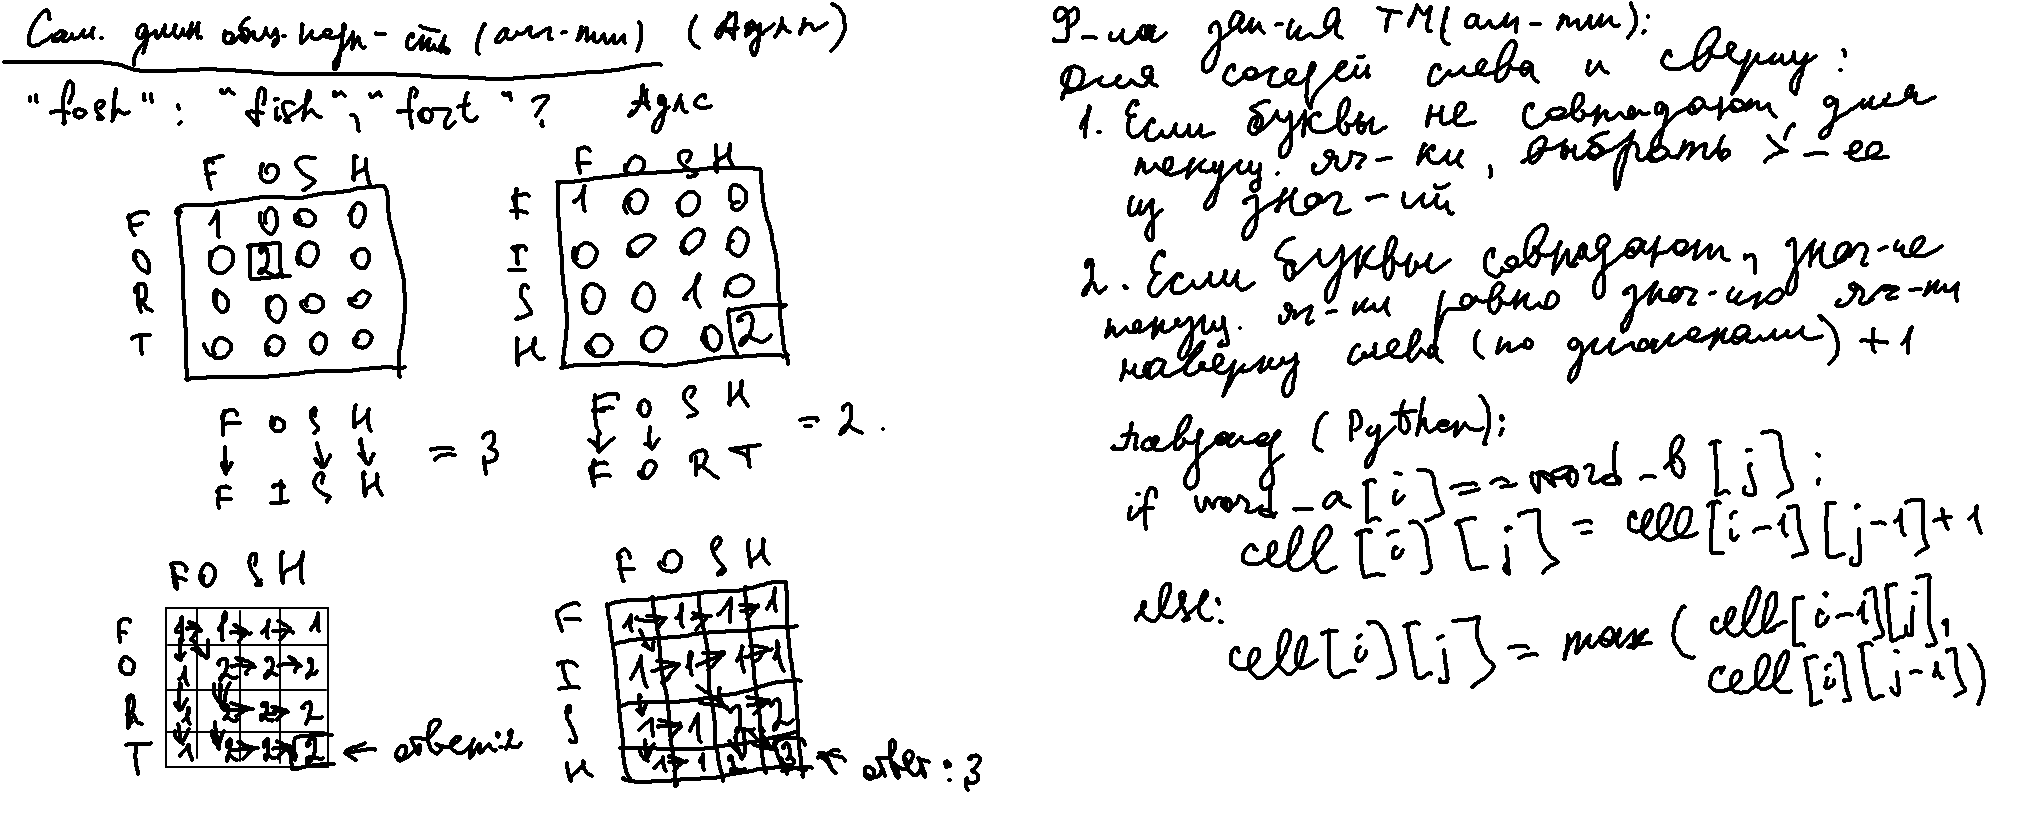 Сам. длин общ. парн-сть (алг-тм) (Адлп)
"fosh": "fish", "fort"? Адлс
F O S H
F 1 0 0 0
O 0 2 0 0
R 0 0 0 0
T 0 0 0 0
F O S H
F 1 0 0 0
I 0 0 0 0
S 0 0 1 0
H 0 0 0 2
F O S H
F I S H
= 3
F O S H
F O R T
= 2.
F O S H
F 1 → 1 → 1 → 1
O 1 2 → 2 → 2
R 1 2 → 2 → 2
T 1 2 → 2 → 2 ← ответ: 2
F O S H
F 1 → 1 → 1 → 1
I 1 → 1 → 1 → 1
S 1 → 1 2 → 2
H 1 → 1 2 3 ← ответ: 3
Ф-ла зап-ния ТМ(алг-тм):
Для соседей слева и сверху:
1. Если буквы не совпадают для
текущ. яч-ки, выбрать >-ее
из знач-ий
2. Если буквы совпадают, знач-ие
текущ. яч-ки равно знач-ию яч-ки
наверху слева (по диагонали) + 1
(Python):
if word_a[i] == word_b[j]:
cell[i][j] = cell[i-1][j-1]+1
else:
cell[i][j] = max(cell[i-1][j],
cell[i][j-1])